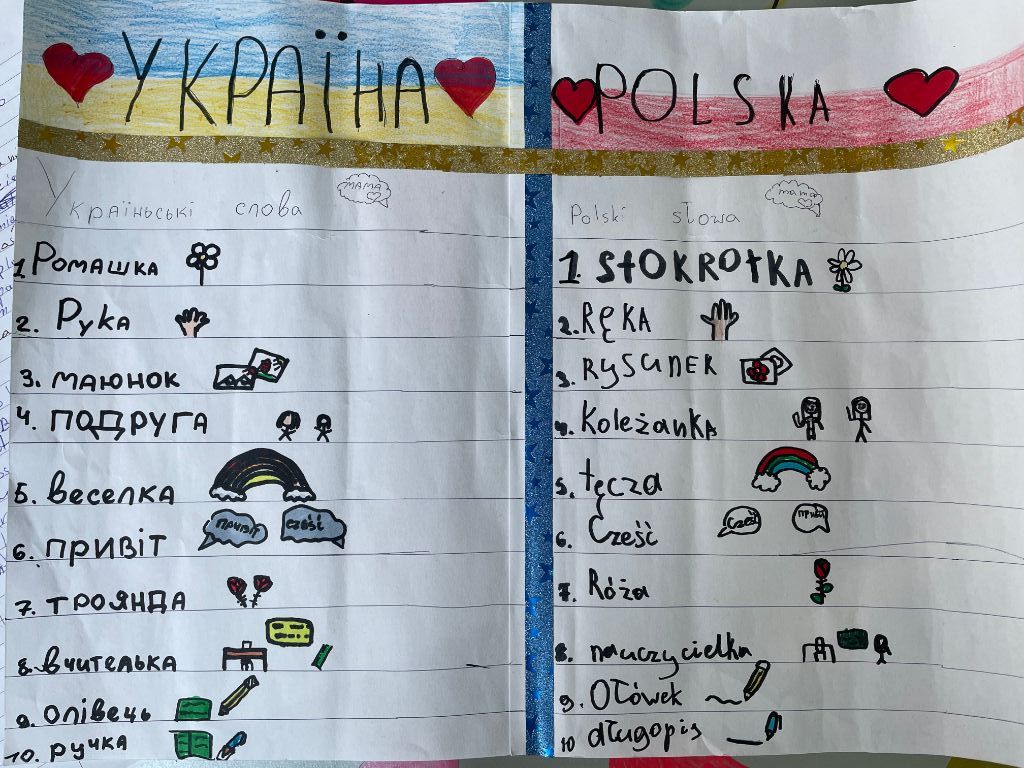 УКРАЇНА
Українські слова
мама
1. Ромашка
2. Рука
3. маюнок
4. подруга
5. веселка
6. привіт
привіт
cześć
7. троянда
8. вчителька
9. олівець
10. ручка
POLSKA
Polski słowa
mama
1. StOKROtKA
2. RĘKA
3. RYSUNEK
4. Koleżanka
5. tęcza
6. Cześć
cześć
привіт
7. Róża
8. nauczycielka
9. Ołówek
10 długopis